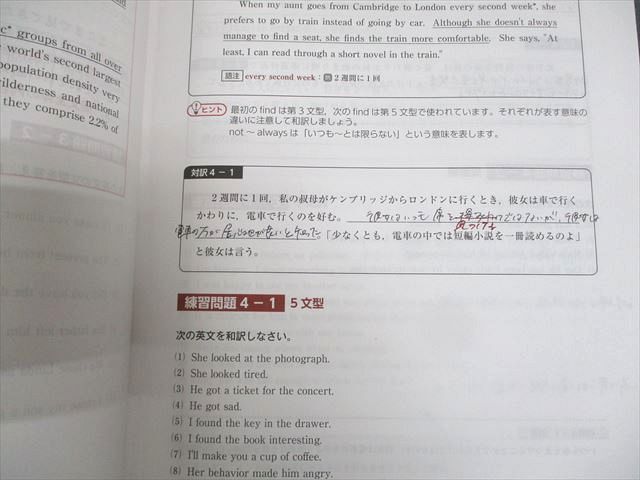 c* groups from all over
world's second largest
population density very
wilderness and national
they comprise 2.2% of
When my aunt goes from Cambridge to London every second week*, she
prefers to go by train instead of going by car. Although she doesn't always
manage to find a seat, she finds the train more comfortable. She says, "At
least, I can read through a short novel in the train."
語注 every second week：副 2週間に1回
ヒント 最初の find は第3文型，次の find は第5文型で使われています。それぞれが表す意味の
違いに注意して和訳しましょう。
not ～ always は「いつも～とは限らない」という意味を表します。
対訳 4－1
2週間に1回，私の叔母がケンブリッジからロンドンに行くとき，彼女は車で行く
かわりに，電車で行くのを好む。彼女はいつも席を
見つける
電車の方が居心地が良いと
「少なくとも，電車の中では短編小説を一冊読めるのよ」
と彼女は言う。
練習問題 4－1 5文型
次の英文を和訳しなさい。
(1) She looked at the photograph.
(2) She looked tired.
(3) He got a ticket for the concert.
(4) He got sad.
(5) I found the key in the drawer.
(6) I found the book interesting.
(7) I'll make you a cup of coffee.
(8) Her behavior made him angry.